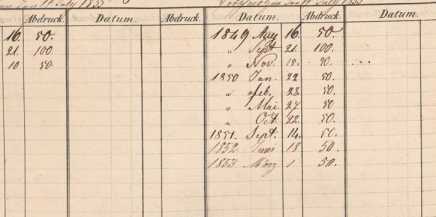 Abdruck. Datum. Abdruck. Datum. Abdruck. Datum.
16. 50. 1849 Aug 16. 50.
21. 100. " Sept 21. 100.
10 50. " Nov. 50. ...
1850 Jan. 22 50.
" Feb. 23. 50.
" Mai 27 50
" Oct. 22. 50.
1851. Sept. 14. 50.
1852. Juni 18 50.
1853 März 1 50.